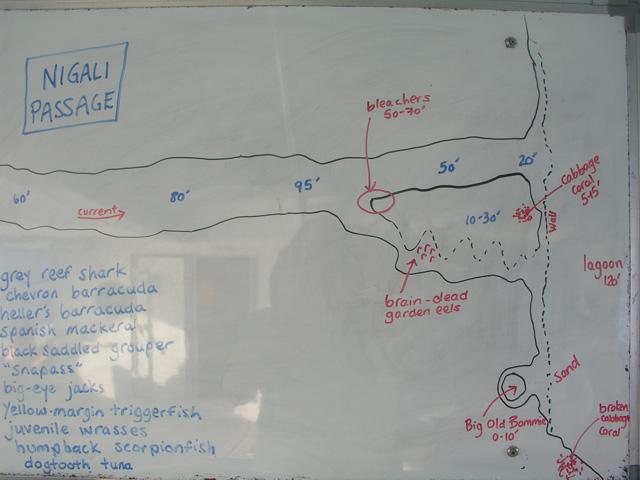 NIGALI
PASSAGE
bleachers
50-70'
60'
current
80'
95'
50'
20'
cabbage
coral
5-15'
10-30'
Wall
lagoon
120'
brain-dead
garden eels
grey reef shark
chevron barracuda
heller's barracuda
spanish mackeral
black saddled grouper
"snapass"
big-eye jacks
yellow-margin triggerfish
juvenile wrasses
humpback scorpionfish
dogtooth tuna
Sand
Big Old Bommie
0-10'
broken
cabbage
coral